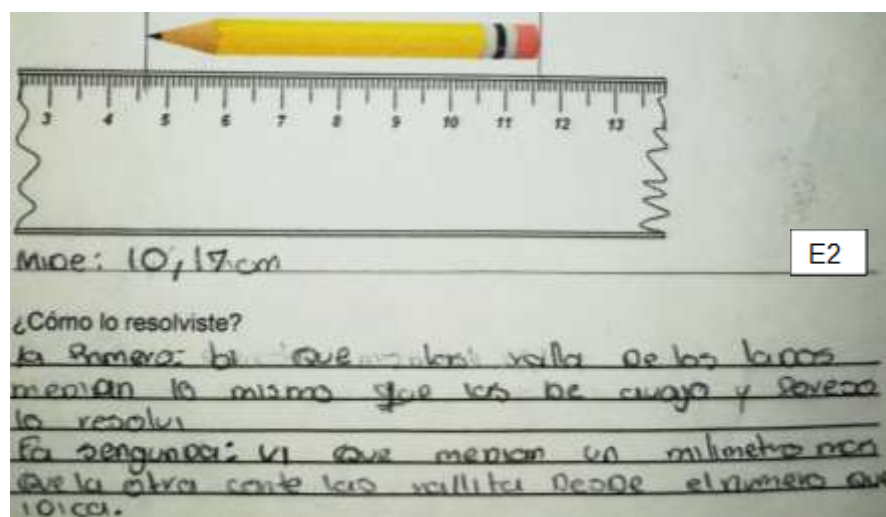 3 4 5 6 7 8 9 10 11 12 13
Mide: 10,17 cm
E2
¿Cómo lo resolviste?
la Primera: bi que las ralla De los lapos
menian lo mismo que los be avajo y
lo resolvi
La sengunda: vi que menian un milimetro mas
que la otra conte las rallita Desde el numero que